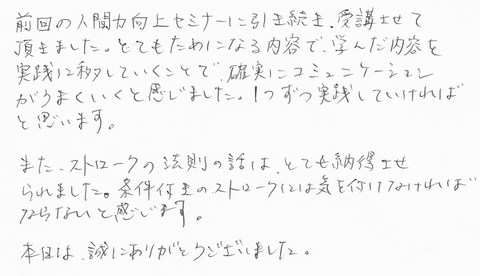 前回の人間力向上セミナーに引き続き、受講させて
頂きました。とてもためになる内容で、学んだ内容を
実践に移していくことで、確実にコミュニケーション
がうまくいくと感じました。1つずつ実践していければ
と思います。
また、ストロークの法則の話は、とても納得させ
られました。条件付きのストロークには気を付けなければ
ならないと感じます。
本日は、誠にありがとうございました。